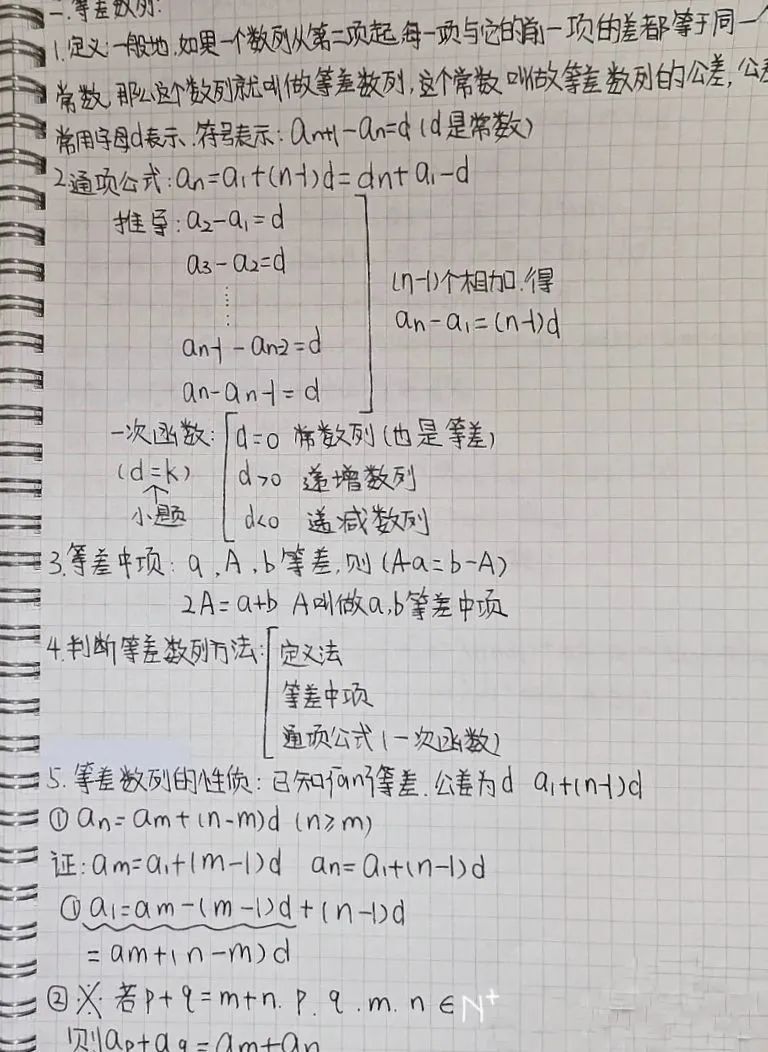 二.等差数列:
1.定义:一般地.如果一个数列从第二项起,每一项与它的前一项的差都等于同一个
常数,那么这个数列就叫做等差数列,这个常数叫做等差数列的公差,公差
常用字母d表示.符号表示:an+1-an=d(d是常数)
2.通项公式:an=a1+(n-1)d=dn+a1-d
推导:a2-a1=d
a3-a2=d
⋮
(n-1)个相加.得
an-a1=(n-1)d
an-1-an-2=d
an-an-1=d
一次函数: d=0 常数列(也是等差)
(d=k) d>0 递增数列
↑
小题 d<0 递减数列
3.等差中项:a,A,b等差,则(A-a=b-A)
2A=a+b A叫做a,b等差中项
4.判断等差数列方法: 定义法
等差中项
通项公式(一次函数)
5.等差数列的性质:已知{an}等差.公差为d a1+(n-1)d
①an=am+(n-m)d(n≥m)
证:am=a1+(m-1)d an=a1+(n-1)d
①a1=am-(m-1)d+(n-1)d
=am+(n-m)d
②※若p+q=m+n.p.q.m.n∈N+
则ap+aq=am+an